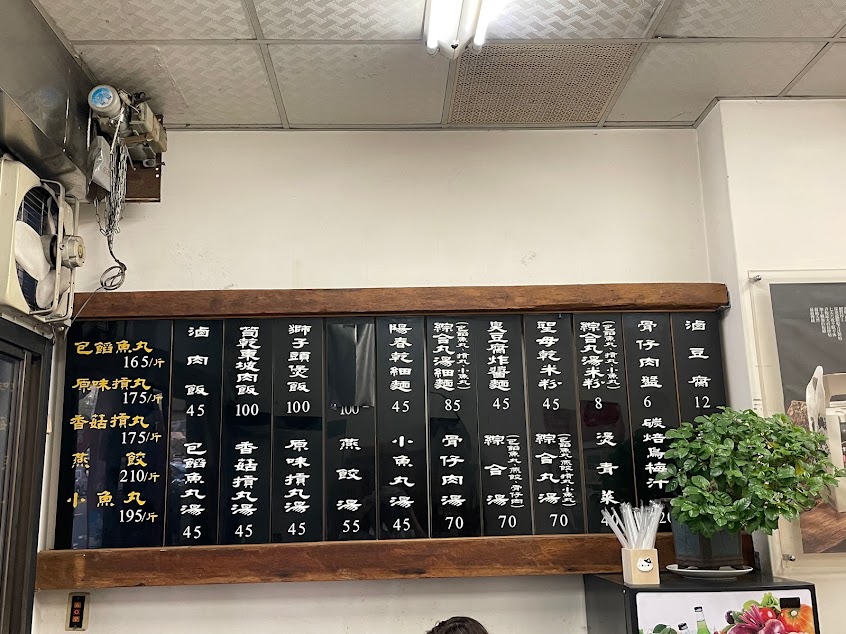 包餡魚丸
165/斤
原味摃丸
175/斤
香菇摃丸
175/斤
燕餃
210/斤
小魚丸
195/斤
滷肉飯
45
包餡魚丸湯
45
筍乾東坡肉飯
100
香菇摃丸湯
45
獅子頭煲飯
100
原味摃丸湯
45
100
燕餃湯
55
陽春乾細麵
45
小魚丸湯
45
綜合丸湯細麵
(包餡魚丸,摃丸,小魚丸)
85
骨仔肉湯
70
臭豆腐炸醬麵
45
綜合湯
(包餡魚丸,燕餃,骨仔肉)
70
聖母乾米粉
45
綜合丸湯
(包餡魚丸,燕餃,摃丸,小魚丸)
70
綜合丸湯米粉
(包餡魚丸,摃丸,小魚丸)
8
燙青菜
4
骨仔肉盤
6
碳焙烏梅汁
滷豆腐
12